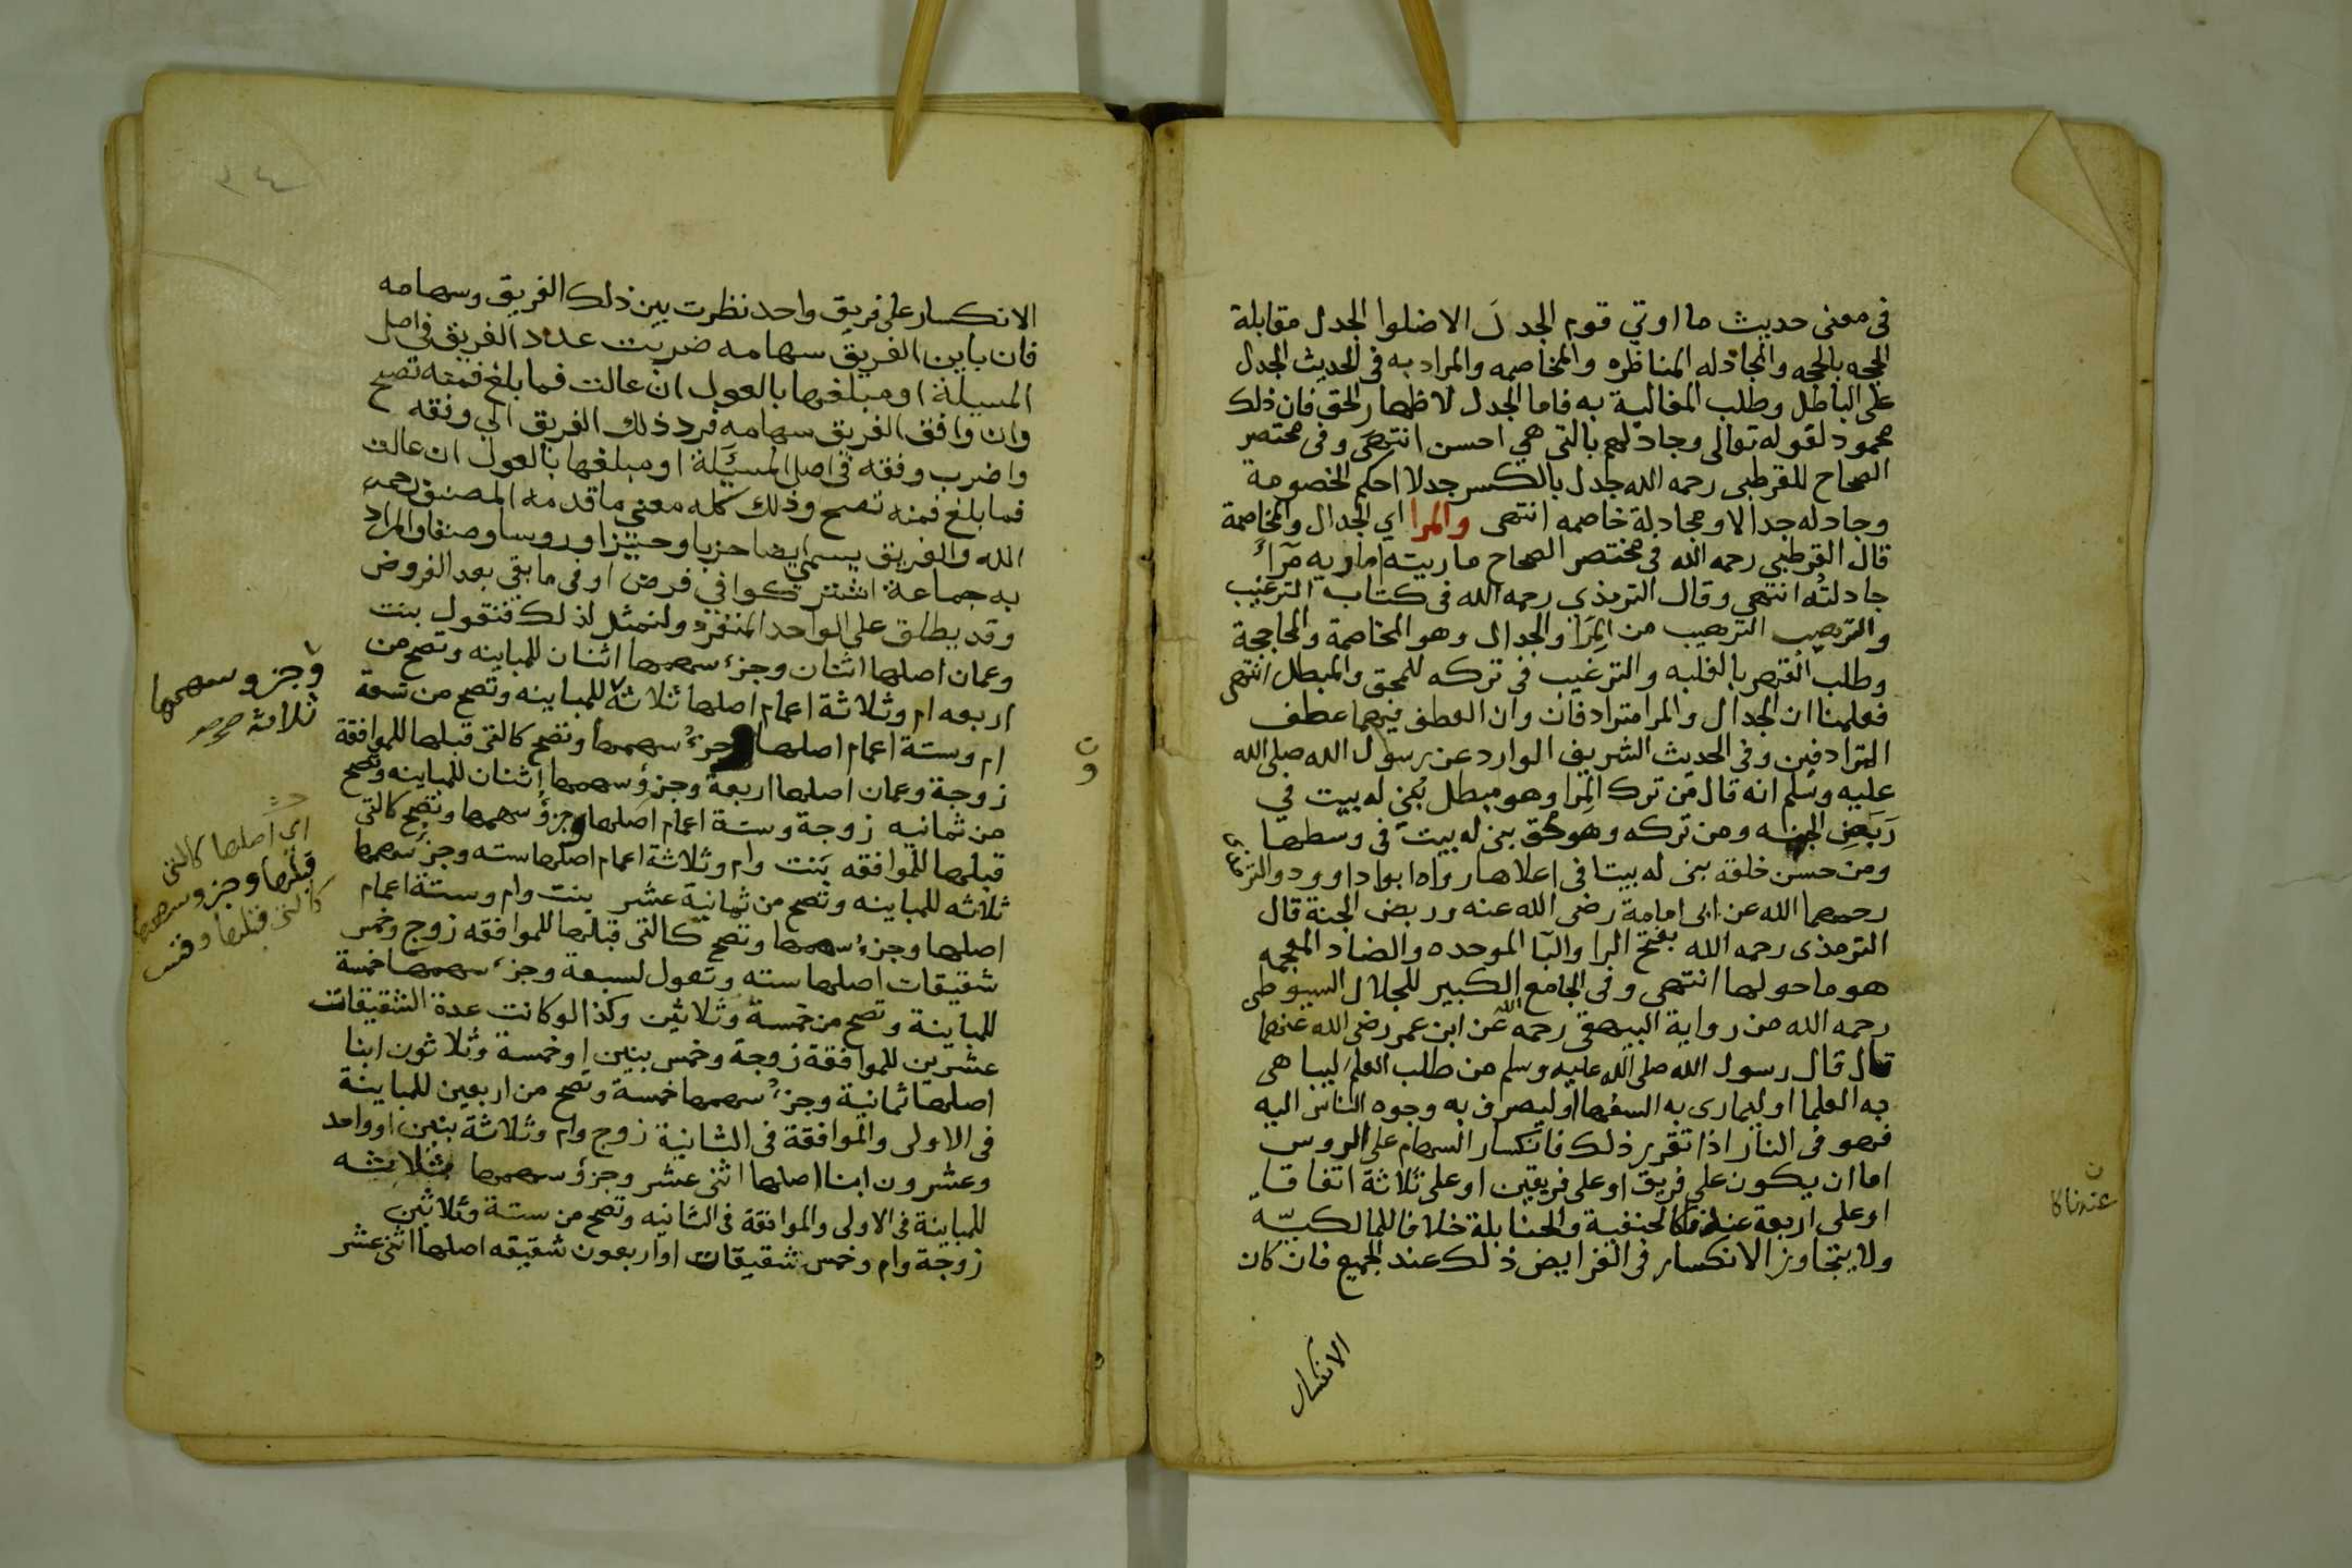 فى معنى حديث ما اوتي قوم الجدل الا ضلوا الجدل مقابلة
الحجه بالحجه والمجادله المناظره والمخاصمه والمراد به فى الحديث الجدل
على الباطل وطلب المغالبة به فاما الجدل لاظهار الحق فان ذلك
محمود لقوله تعالى وجادلهم بالتى هي احسن انتهى وفى مختصر
الصحاح للقرطبى رحمه الله جدل بالكسر جدلا احكم الخصومة
وجادله جدالا ومجادلة خاصمه انتهى والمرا اي الجدال والمخاصمة
قال القرطبي رحمه الله فى مختصر الصحاح ماريته اماريه مرآءً
جادلتُه انتهي وقال الترمذى رحمه الله فى كتاب الترغيب
والترهيب الترهيب من المِرَا والجدال وهو المخاصمة والمحاججة
وطلب القهر بالغلبه والترغيب فى تركه للمحق والمبطل انتهى
فعلمنا ان الجدال والمرا مترادفان وان العطف فيهما عطف
المترادفين وفى الحديث الشريف الوارد عن رسول الله صلى الله
عليه وسلم انه قال مَن ترك المِرا وهو مبطل بُنِىَ له بيت في
رَبَضِ الجنه ومن تركه وهو محق بنى له بيت فى وسطها
ومن حسن خلقه بنى له بيتا فى اعلاها رواه ابو داوود والترمذى
رحمهما الله عن ابى امامة رضى الله عنه وربض الجنة قال
الترمذى رحمه الله بفتح الرا والبا الموحده والضاد المعجمه
هو ما حولها انتهى وفى الجامع الكبير للجلال السيوطى
رحمه الله من رواية البيهقى رحمه الله عن ابن عمر رضى الله عنهما
قال قال رسول الله صلى الله عليه وسلم من طلب العلم ليباهى
به العلما او ليمارى به السفها او ليصرف به وجوه الناس اليه
فهو فى النار اذا تقرر ذلك فانكسار السهام على الروس
اما ان يكون على فريق او على فريقين او على ثلاثة اتفاقا
او على اربعة عندنا كالحنفية والحنابلة خلافا للمالكيّه
ولا يتجاوز الانكسار فى الفرايض ذلك عند الجميع فان كان
ن
عندنا كا
الانكسار
٣٤
الانكسار على فريق واحد نظرت بين ذلك الفريق وسهامه
فان باين الفريق سهامه ضربت عدد الفريق فى اصل
المسيلة او مبلغها بالعول ان عالت فما بلغ فمنه تصح
وان وافق الفريق سهامه فرد ذلك الفريق الى وفقه
واضرب وفقه فى اصل المسيلة او مبلغها بالعول ان عالت
فما بلغ فمنه تصح وذلك كله معنى ما قدمه المصنف رحمه
الله والفريق يسمى ايضا حزبا وحيزا وروسا وصنفا والمراد
به جماعة اشتركوا في فرض او فى ما بقى بعد الفروض
وقد يطلق على الواحد المنفرد ولنمثل لذلك فنقول بنت
وعمان اصلها اثنان وجزء سهمها اثنان للمباينه وتصح من
اربعه ام وثلاثة اعمام اصلها ثلاثة للمباينه وتصح من تسعة
ام وستة اعمام اصلها وجزء سهمها وتصح كالتى قبلها للموافقة
زوجة وعمان اصلها اربعة وجزؤ سهمها اثنان للمباينه وتصح
من ثمانيه زوجة وستة اعمام اصلها وجزؤ سهمها وتصح كالتى
قبلها للموافقه بنت وام وثلاثة اعمام اصلها سته وجزء سهمها
ثلاثه للمباينه وتصح من ثمانية عشر بنت وام وستة اعمام
اصلها وجزء سهمها وتصح كالتى قبلها للموافقه زوج وخمس
شقيقات اصلها سته وتعول لسبعة وجزء سهمها خمسة
للمباينة وتصح من خمسة وثلاثين وكذا لو كانت عدة الشقيقات
عشرين للموافقة زوجة وخمس بنين او خمسة وثلاثون ابنا
اصلها ثمانية وجزء سهمها خمسة وتصح من اربعين للمباينة
فى الاولى والموافقة فى الثانية زوج وام وثلاثة بنين او واحد
وعشرون ابنا اصلها اثنى عشر وجزؤ سهمها ثلاثه
للمباينة فى الاولى والموافقة فى الثانيه وتصح من ستة وثلاثين
زوجة وام وخمس شقيقات او اربعون شقيقه اصلها اثنى عشر
وجزو سهمها
ثلاثة صح
اي اصلها كالتى
قبلها وجزو سهمها
كالتى قبلها